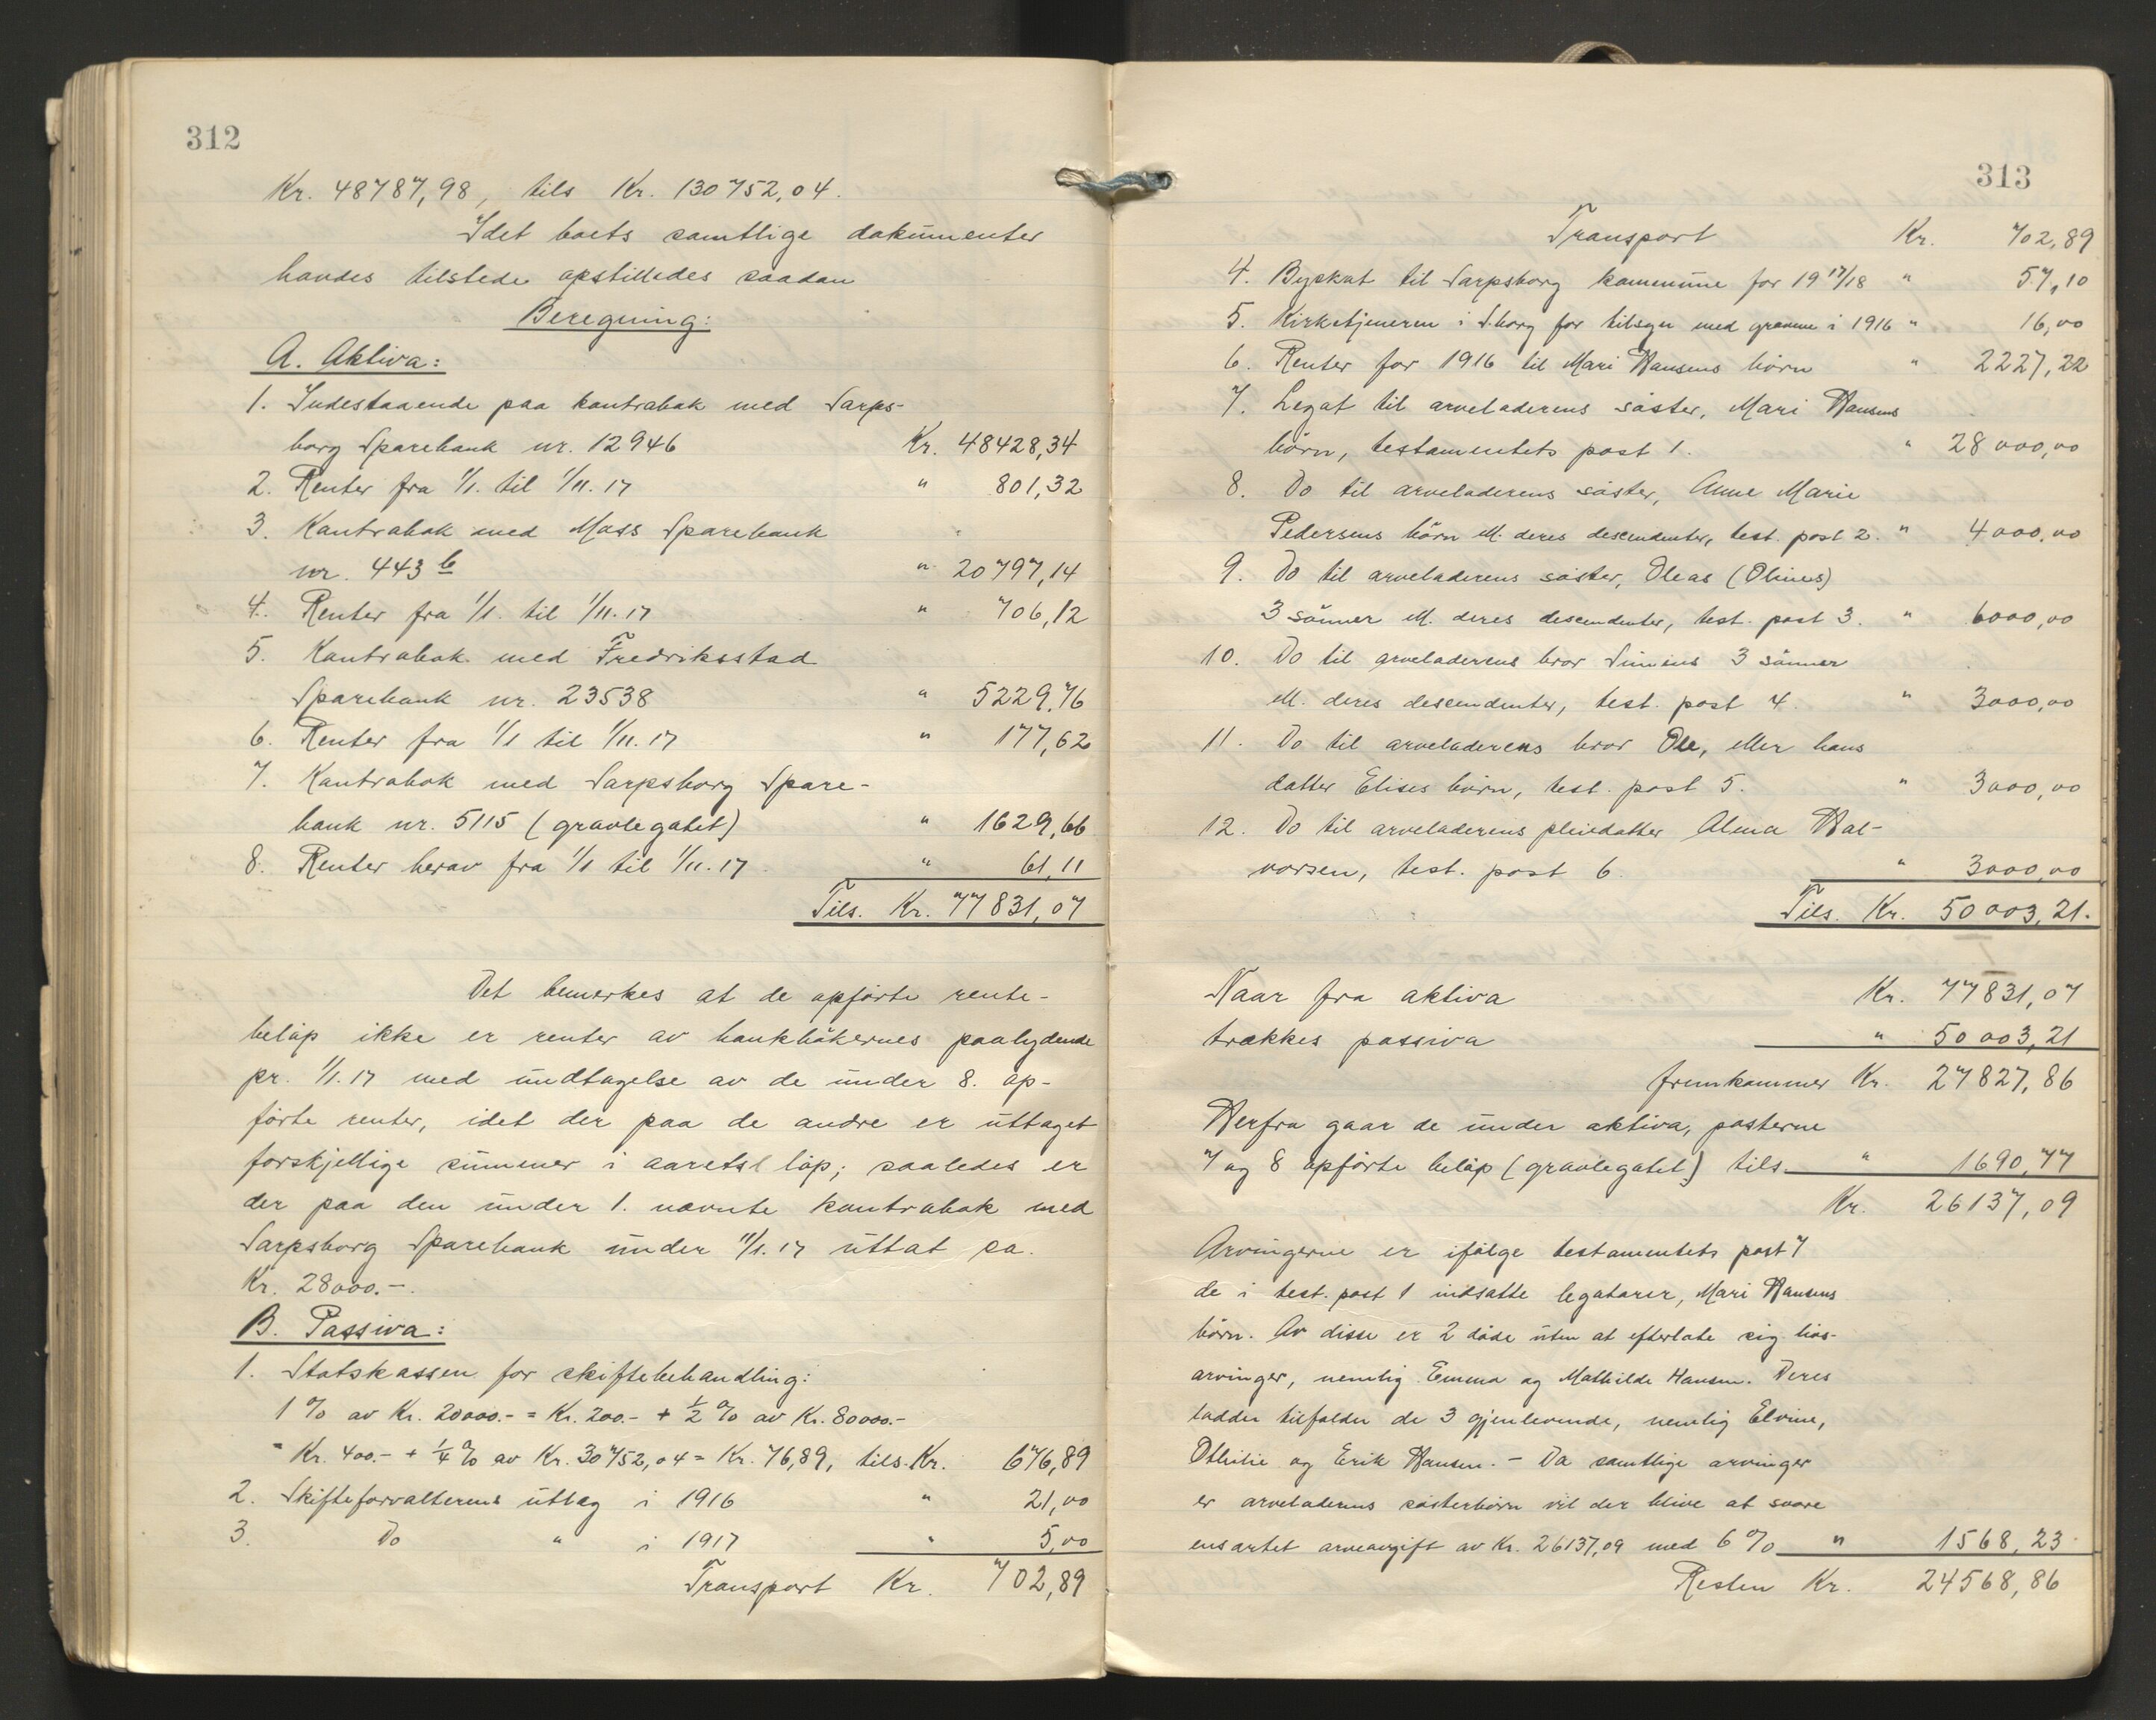 312
Kr. 48787,98, tils Kr. 130752,04.
Idet boets samtlige dokumenter
havdes tilstede opstilledes saadan
Beregning:
A. Aktiva:
1. Indestaaende paa kontrabok med Sarps-
borg Sparebank nr. 12946 Kr. 48428,34
2. Renter fra 1/1. til 1/11. 17 " 801,32
3. Kontrabok med Moss Sparebank
nr. 443 b " 20797,14
4. Renter fra 1/1. til 1/11. 17 " 706,12
5. Kontrabok med Fredriksstad
Sparebank nr. 23538 " 5229,76
6. Renter fra 1/1 til 1/11. 17 " 177,62
7. Kontrabok med Sarpsborg Spare-
bank nr. 5115 (gravlegatet) " 1629,66
8. Renter herav fra 1/1 til 1/11. 17 " 61,11
Tils. Kr. 77831,07
Det bemerkes at de opførte rente-
beløp ikke er renter av bankbøkernes paalydende
pr. 1/1. 17 med undtagelse av de under 8. op-
førte renter, idet der paa de andre er uttaget
forskjellige summer i aarets løp; saaledes er
der paa den under 1. nævnte kontrabok med
Sarpsborg Sparebank under 11/1. 17 uttat ca.
Kr. 28000.-.
B. Passiva:
1. Statskassen for skiftebehandling:
1 % av Kr. 20000.- = Kr. 200.- + 1/2 % av Kr. 80000.-
= Kr. 400.- + 1/4 % av Kr. 30752,04 = Kr. 76,89, tils. Kr. 676,89
2. Skifteforvalterens utlæg i 1916 " 21,00
3. Do " i 1917 " 5,00
Transport Kr. 702,89
313
Transport Kr. 702,89
4. Byskat til Sarpsborg kommune for 19 17/18 " 57,10
5. Kirketjeneren i S.borg for tilsyn med gravene i 1916 " 16,00
6. Renter for 1916 til Mari Hansens børn " 2227,22
7. Legat til arveladerens søster, Mari Hansens
børn, testamentets post 1. " 28000,00
8. Do til arveladerens søster, Anne Marie
Pedersens børn ell. deres descendenter, test. post 2. " 4000,00
9. Do til arveladerens søster, Oleas (Olines)
3 sønner ell. deres descendenter, test. post 3. " 6000,00
10. Do til arveladerens bror Simens 3 sønner
ell. deres descendenter, test. post 4. " 3000,00
11. Do til arveladerens bror Ole, eller hans
datter Elises børn, test. post 5. " 3000,00
12. Do til arveladerens pleiedatter Alma Hal-
vorsen, test. post 6. " 3000,00
Tils. Kr. 50003,21.
Naar fra aktiva Kr. 77831,07
trækkes passiva " 50003,21
fremkommer Kr. 27827,86
Herfra gaar de under aktiva, posterne
7 og 8 opførte beløp (gravlegatet) tils. " 1690,77
Kr. 26137,09
Arvingerne er ifølge testamentets post 7
de i test. post 1 indsatte legatarer, Mari Hansens
børn. Av disse er 2 døde uten at efterlate sig livs-
arvinger, nemlig Emma og Mathilde Hansen. Deres
lodder tilfalder de 3 gjenlevende, nemlig Elvine,
Othilie og Erik Hansen. - Da samtlige arvinger
er arveladerens søsterbørn vil der blive at svare
ensartet arveavgift av Kr. 26137,09 med 6 % " 1568,23
Resten Kr. 24568,86